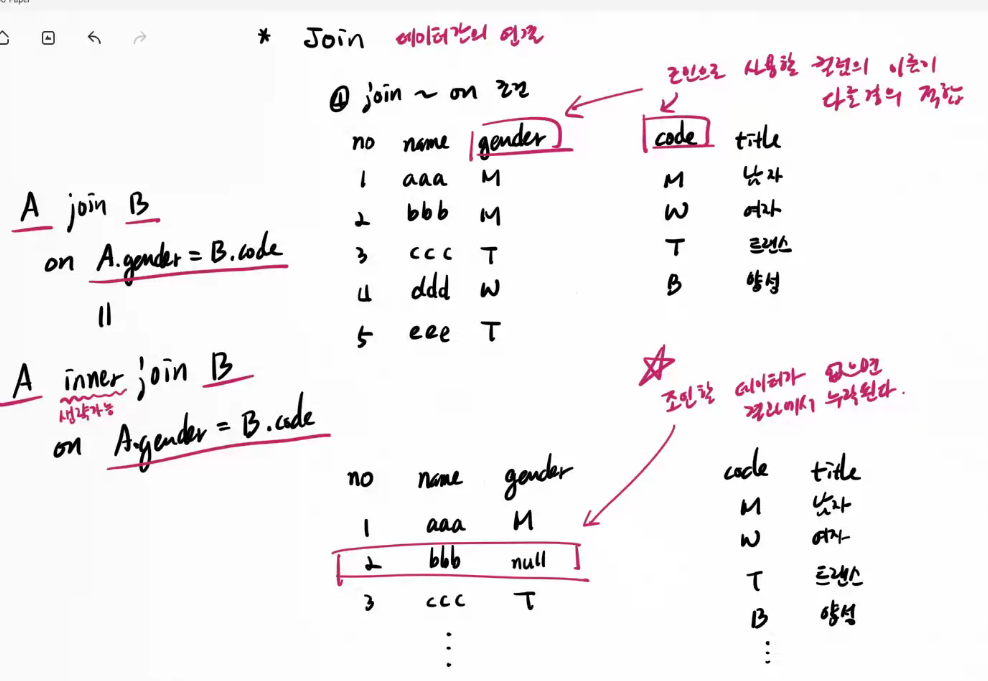 * Join 데이터간의 연결
④ join ~ on 조건
조인으로 사용할 컬럼의 이름이
다를경우 적합
no name gender
1 aaa M
2 bbb M
3 ccc T
4 ddd W
5 eee T
code title
M 남자
W 여자
T 트랜스
B 양성
A join B
on A.gender = B.code
||
A inner join B
생략가능
on A.gender = B.code
조인할 데이터가 없으면
결과에서 누락된다.
no name gender
1 aaa M
2 bbb null
3 ccc T
code title
M 남자
W 여자
T 트랜스
B 양성